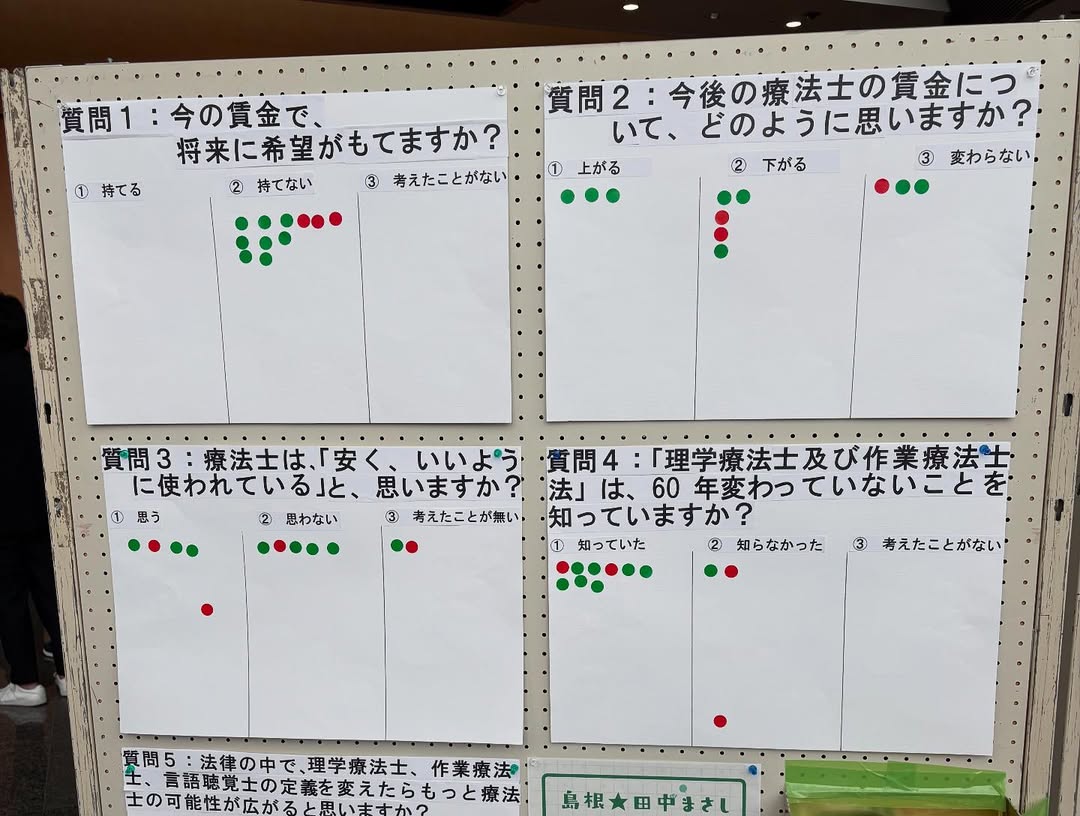 質問1：今の賃金で、
将来に希望がもてますか？
① 持てる
② 持てない
③ 考えたことがない
質問2：今後の療法士の賃金につ
いて、どのように思いますか？
① 上がる
② 下がる
③ 変わらない
質問3：療法士は、「安く、いいよう
に使われている」と、思いますか？
① 思う
② 思わない
③ 考えたことが無い
質問4：「理学療法士及び作業療法士
法」は、60 年変わっていないことを
知っていますか？
① 知っていた
② 知らなかった
③ 考えたことがない
質問5：法律の中で、理学療法士、作業療法
士、言語聴覚士の定義を変えたらもっと療法
士の可能性が広がると思いますか？
島根★田中まさし